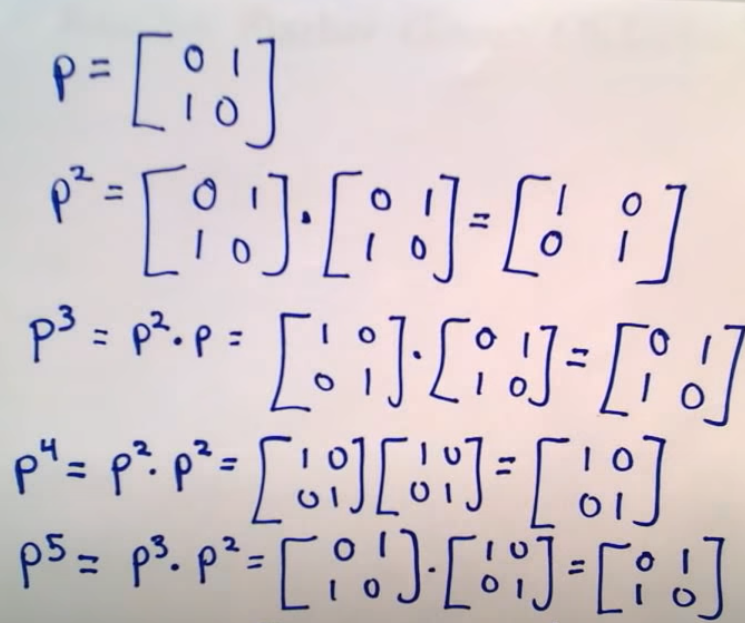 p = [0 1; 1 0]
p² = [0 1; 1 0] · [0 1; 1 0] = [1 0; 0 1]
p³ = p² · p = [1 0; 0 1] · [0 1; 1 0] = [0 1; 1 0]
p⁴ = p² · p² = [1 0; 0 1] [1 0; 0 1] = [1 0; 0 1]
p⁵ = p³ · p² = [0 1; 1 0] · [1 0; 0 1] = [0 1; 1 0]